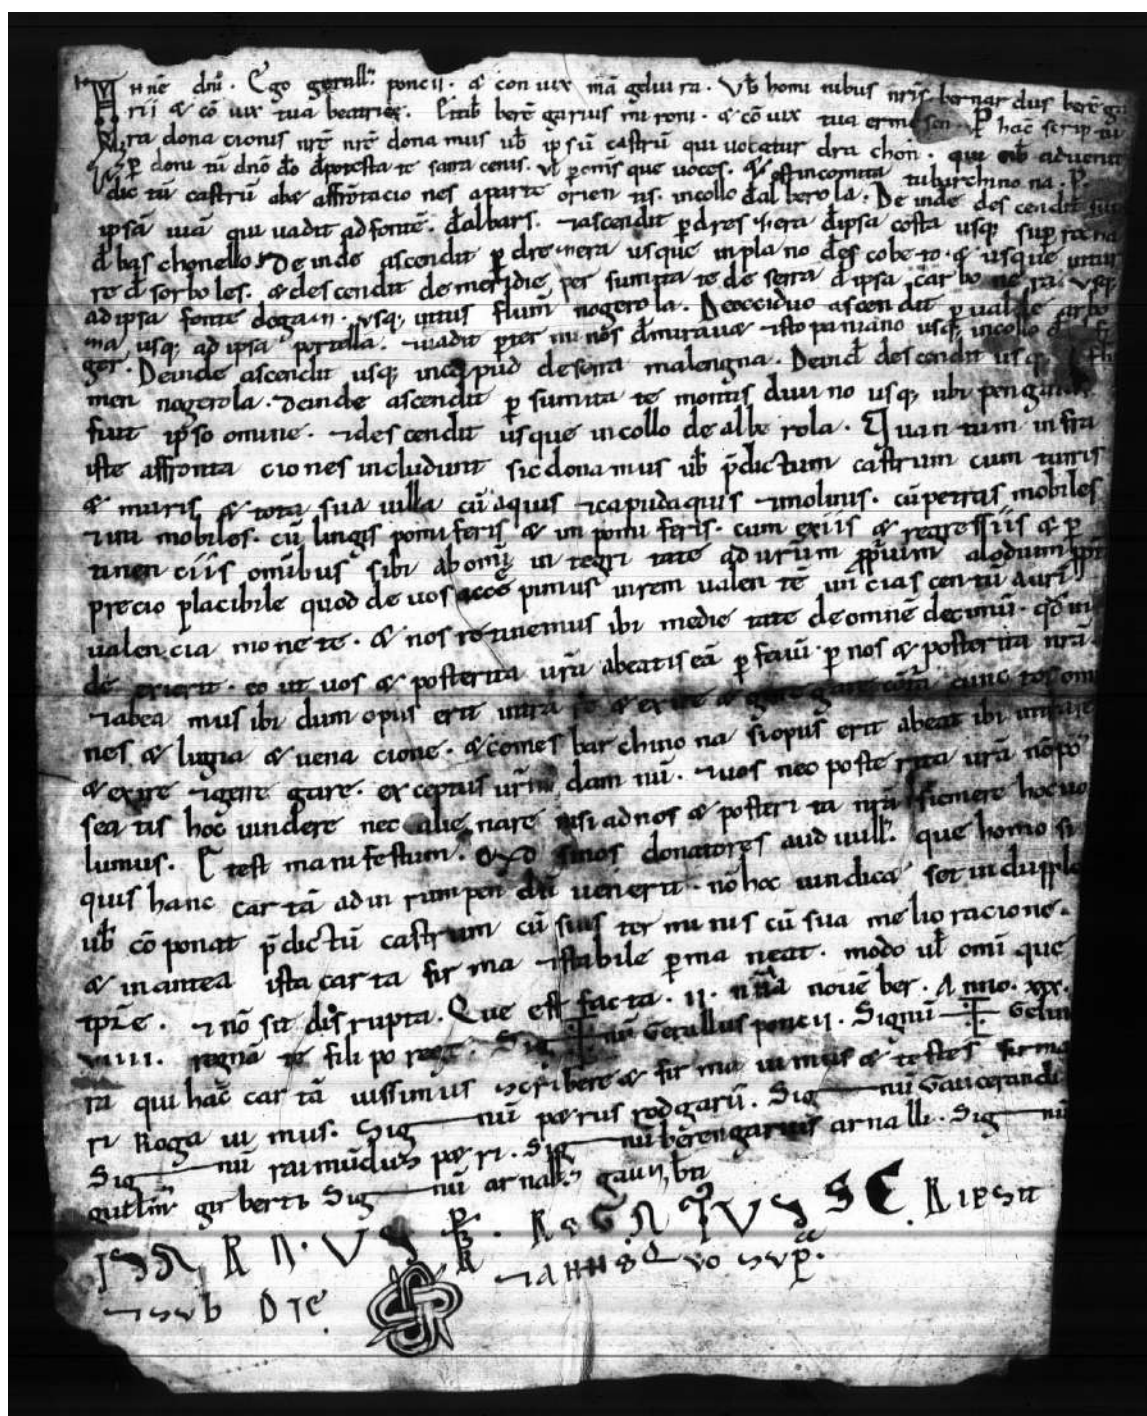 In nñe dnī. Ego gerall9 poncii. & coniux mā geluira. Vƀ hominibus nr̄is bernardus berēga
rii & cō uix tua beatrice. Et aƀ berēgarius mironi. & cōuix tua ermesen. P hac̄ scriptu
ra donacionis nr̄e nr̄e donamus uƀ ipsū castrū qui uocatur drachon. qui
p donitū dnō dō potestate sarracenis. ul̄ p omīs que uoces. & est in comitatu barchinona.
dictū castrū abe affrōtaciones a parte orientis. in collo dalberola. Deinde descendit
ipsā uiā qui uadit ad fontē. dalbars. ⁊ascendit p dreshera dipsa costa usq; sup
d baschonello. deinde ascendit p dreshera usque in plano descobeto. & usque in tur
re d sorboles. & descendit de meridie, per sumitate de serra dipsa carbonera. usq;
ad ipsa fonte dogain. usq; intus flum̄ nogerola. De occiduo ascendit p ualde arbo
ma usq; ad ipsa portella. ⁊uadit p terminos d miraua & isto pannano usq; in collo
ger. Deinde ascendit usq; in capud de serra malengna. Deind descendit usq;
men nogerola. deinde ascendit p sumitate montis diuino usq; ubi pengat
fuit ipso omine. ⁊descendit usque in collo de alberola. Quantum infra
iste affrontaciones includunt sic donamus uƀ p̄dictum castrum cum turris
& muris & tota sua uilla cū aquis ⁊capudaquis ⁊molinis. cū petras mobiles
⁊inmobiles. cū lingis pomiferis & inpomiferis. cum exiis & regressiis & p
tinenciis om̄ibus sibi ab omī integritate ad urūm pp̄rium alodium
precio placibile quod de uos accepimus in rem ualentē unciās centū auri
ualencia monete. & nos retinemus ibi medietate de omnē decimū. qd in
de exierit. eo ut uos & posterita urā abeatis eā p feuū. p nos & posterita nrā.
⁊abeamus ibi dum opus erit intrare & exire & gerregare cum cunctos om
nes & lugra & uenacione. & comes barchinona si opus erit abeat ibi intrare
& exire ⁊gerregare. exceptus urm̄ damnū. ⁊uos nec posterita urā nō po
seatis hoc uindere nec alienare nisi ad nos & posterita nrā firmere hoc uo
lumus. Et est manifestum. Qd si nos donatores aud ull9 que homo si
quis hanc cartā ad inrumpendū uenerit. nō hoc uindica set in dupplo
uƀ cōponat p̄dictū castrum cū suis terminis cū sua melioracione.
& inantea ista carta firma ⁊stabile pmaneat. modo ul̄ omī que
tpr̄e. ⁊ nō sit disrupta. Que est facta. II. nn̄a nouēber. Anno. XXX.
VIIII. regnāte filipo rege. Sig + nū Gerallus poncii. Signū + Gelui
ra qui hac̄ cartā iussimus scribere & firmauimus & testes firma
ri Rogauimus. Sig——nū petrus rodgarii. Sig——nū Gaucerandi
Sig——nū raimūdus petri. Sig——nū berengarius arnalli. Sig——nū
guilm9 girberti. Sig——nū arnall9
SCRIPSIT
⁊sub DIE ⁊ANNO QVO SVP.